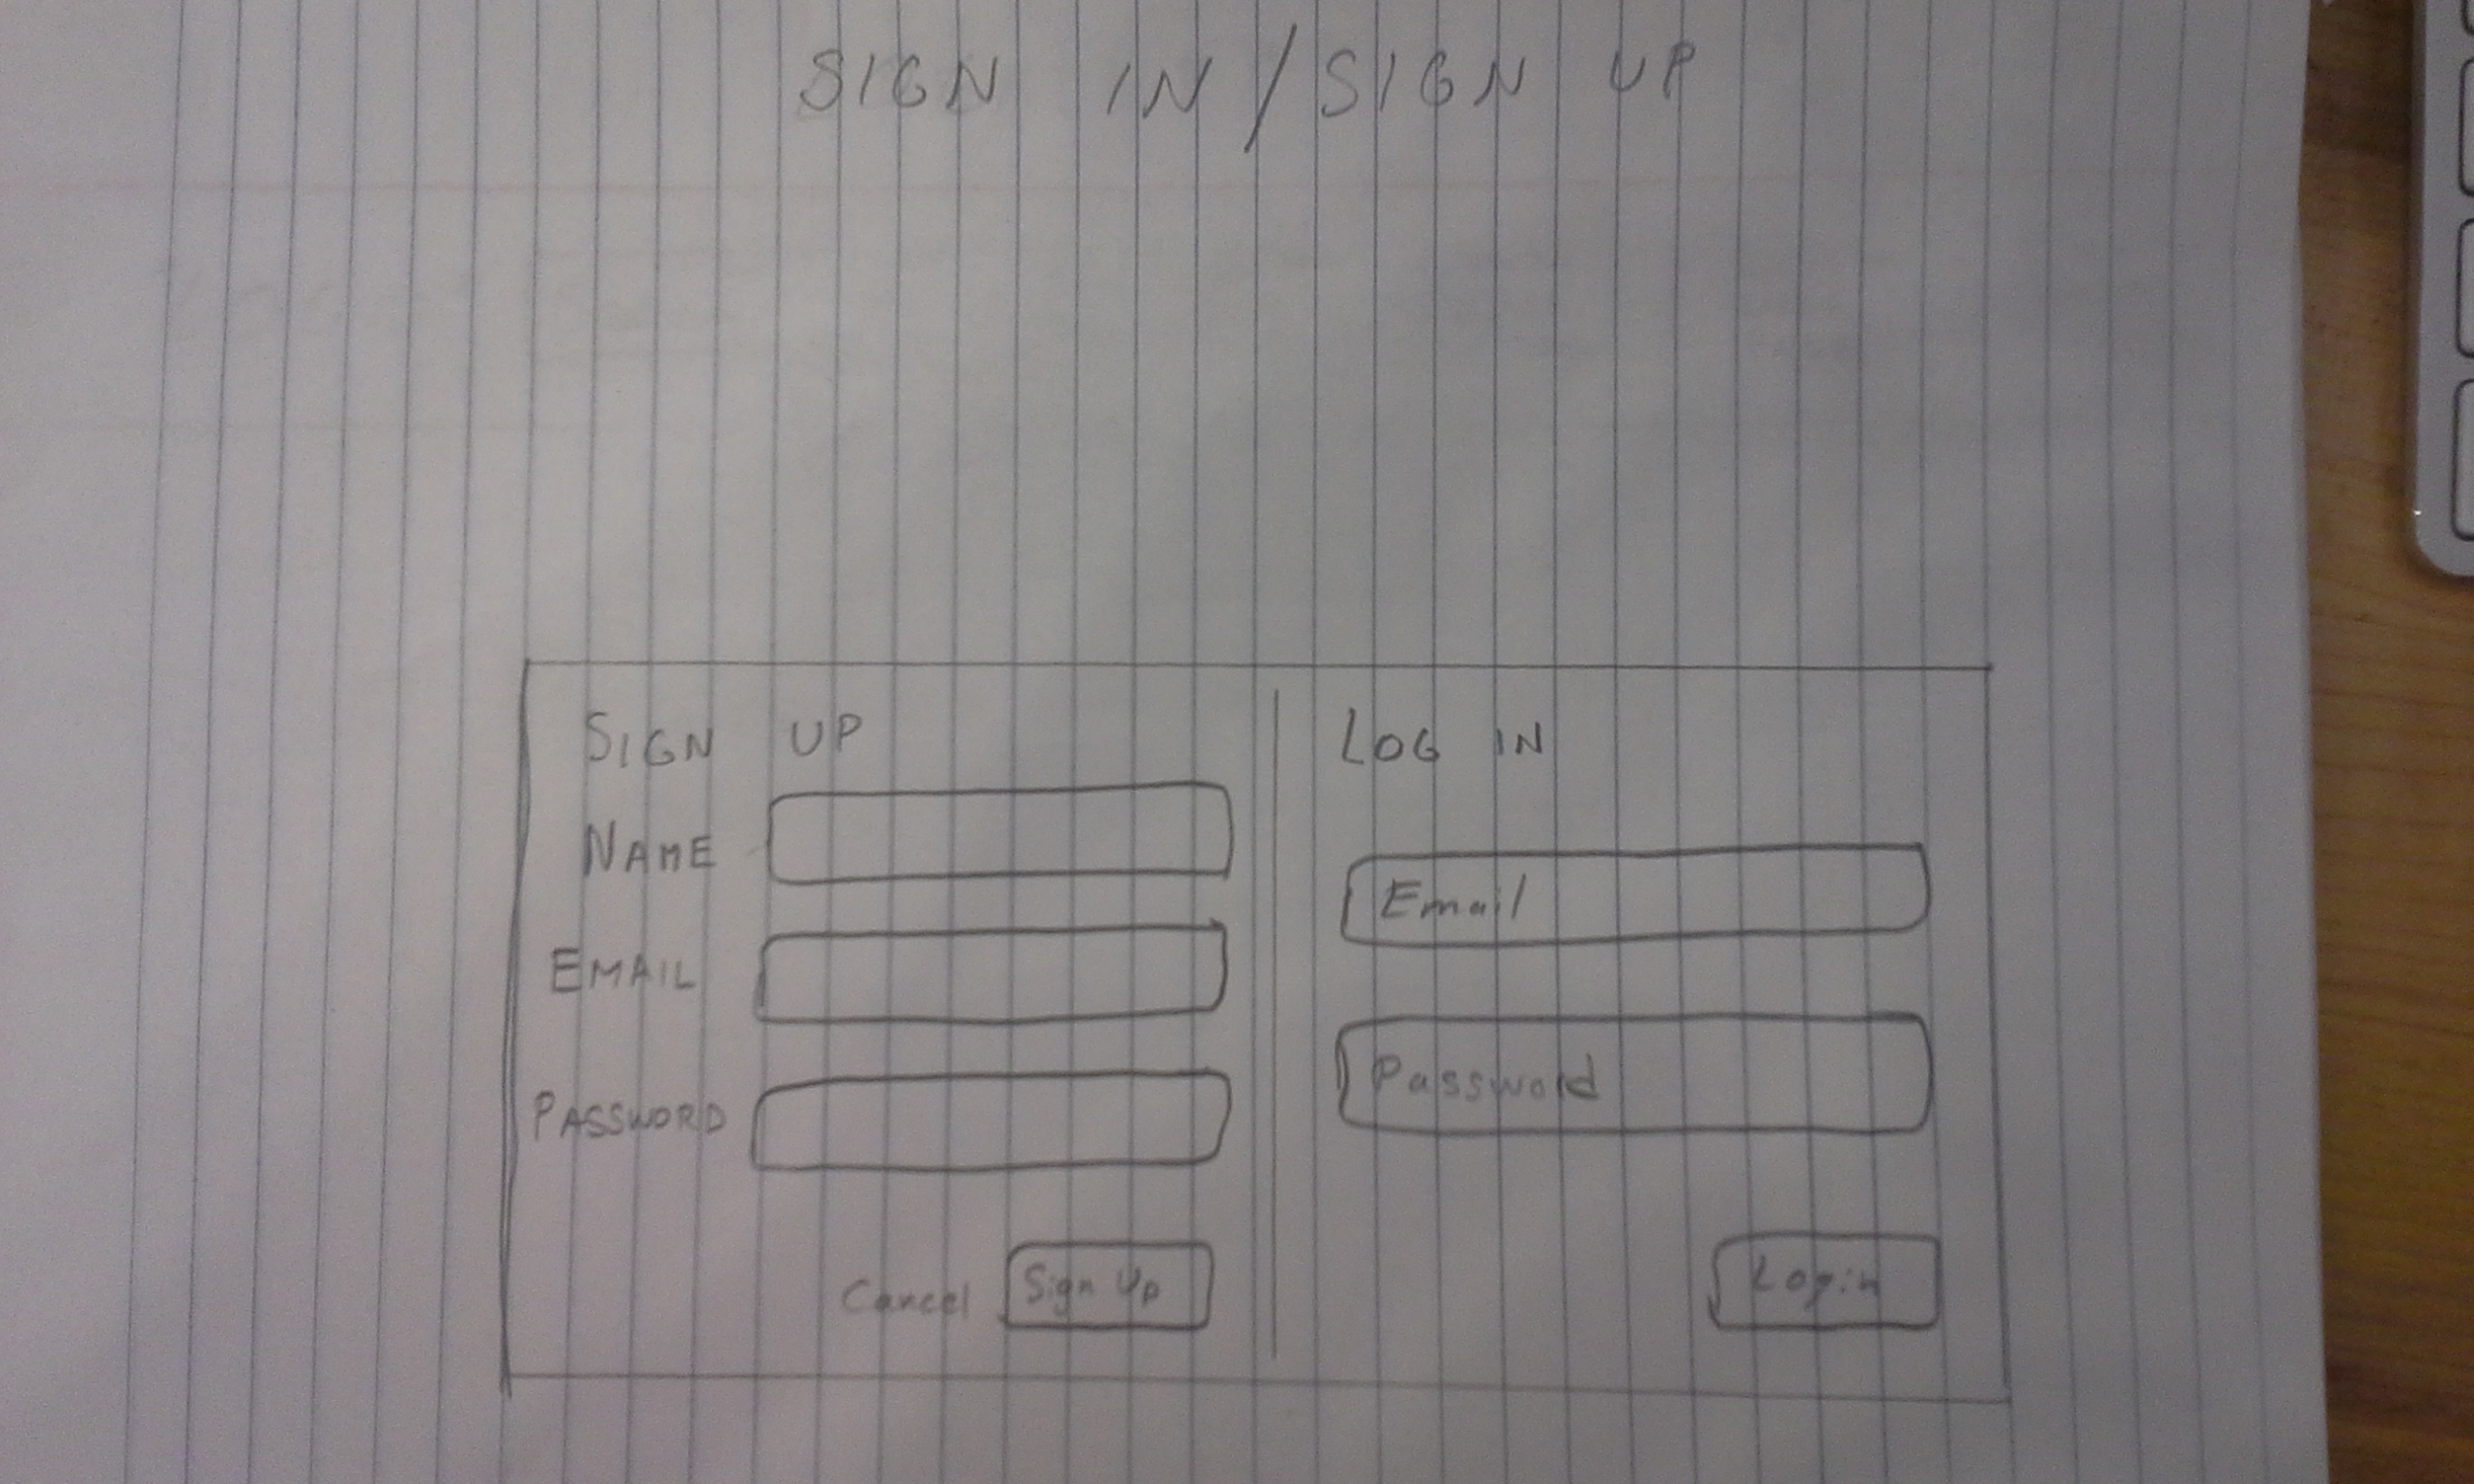 SIGN IN / SIGN UP
SIGN UP
NAME
EMAIL
PASSWORD
Cancel
Sign Up
LOG IN
Email
Password
Login